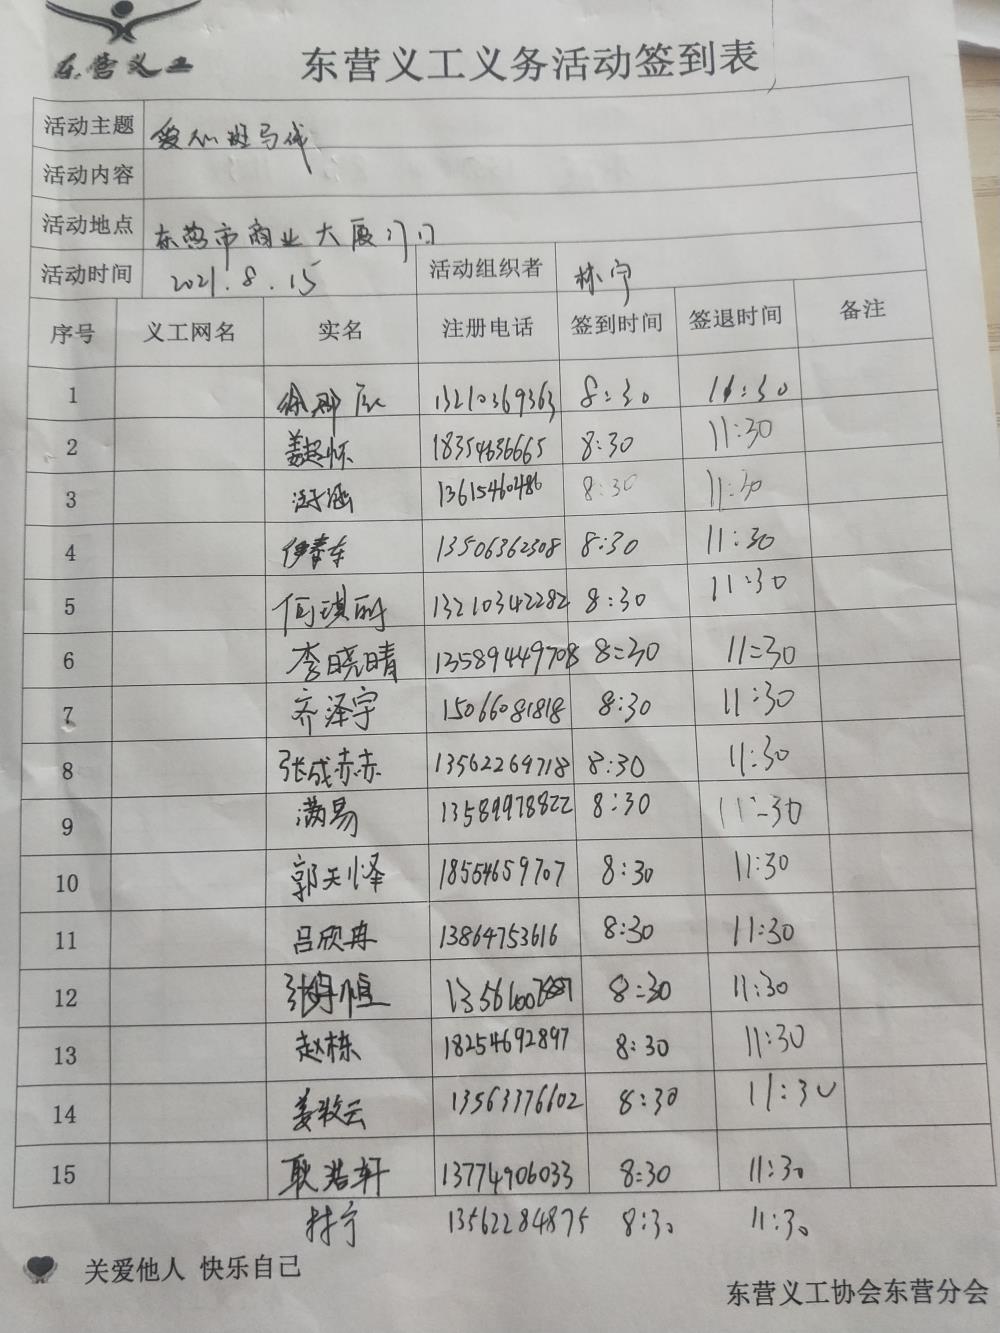 东营义工
东营义工义务活动签到表
活动主题 爱心斑马线
活动内容
活动地点 东营市商业大厦门口
活动时间 2021.8.15 活动组织者 林宁
序号 义工网名 实名 注册电话 签到时间 签退时间 备注
1 13210369363 8:30 11:30
2 姜起怀 18354636665 8:30 11:30
3 13615460486 8:30 11:30
4 伊春车 13506362308 8:30 11:30
5 何琪 13210342282 8:30 11:30
6 李晓晴 13589449708 8:30 11:30
7 齐泽宇 15066081818 8:30 11:30
8 张成赤赤 13562269718 8:30 11:30
9 满易 13589978822 8:30 11:30
10 郭天怿 18554659707 8:30 11:30
11 吕欣冉 13864753616 8:30 11:30
12 8:30 11:30
13 赵栋 18254692897 8:30 11:30
14 姜牧云 13563376602 8:30 11:30
15 耿浩轩 13774906033 8:30 11:30
林宁 13562284875 8:30 11:30
关爱他人 快乐自己
东营义工协会东营分会